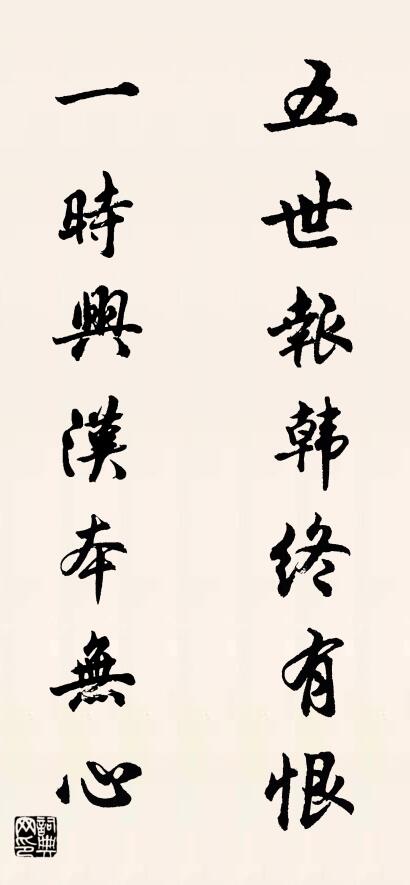 五世報韩終有恨
一時興漢本無心
詞典网印